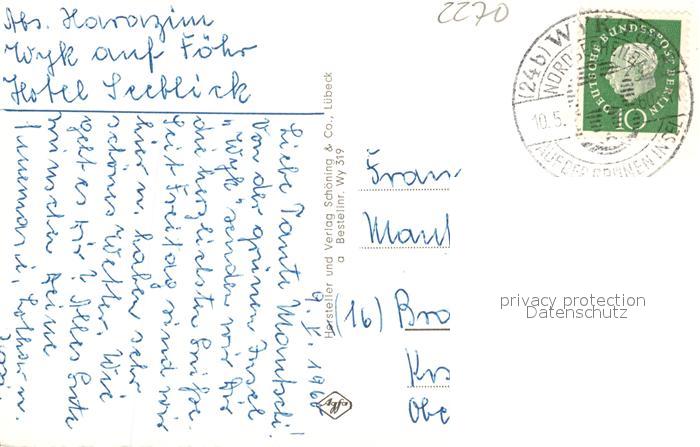 2270
Abs. Harazim
Wyk auf Föhr
Hotel Seeblick
9. V. 1960
Liebe Tante Mautschi!
Von der grünen Insel
"Wyk" senden wir Dir
die herzlichsten Grüße.
Seit Freitag sind wir
hier u. haben sehr
schönes Wetter. Wie
geht es Dir? Alles Gute
wünschen Deine
Annemarie, Lothar u.
Hersteller und Verlag Schöning & Co., Lübeck
a Bestellnr. Wy 319
Agfa
(24b) WYK
NORDSEE
10.5.
AUF DER GRÜNEN INSEL
DEUTSCHE BUNDESPOST BERLIN
10
Frau
(16) Bro
Krs
Obe
privacy protection
Datenschutz